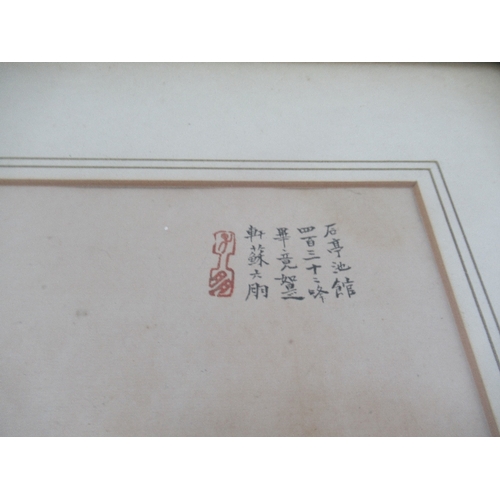 石亭池館
四百三十二峰
畢竟如
軒蘇六朋